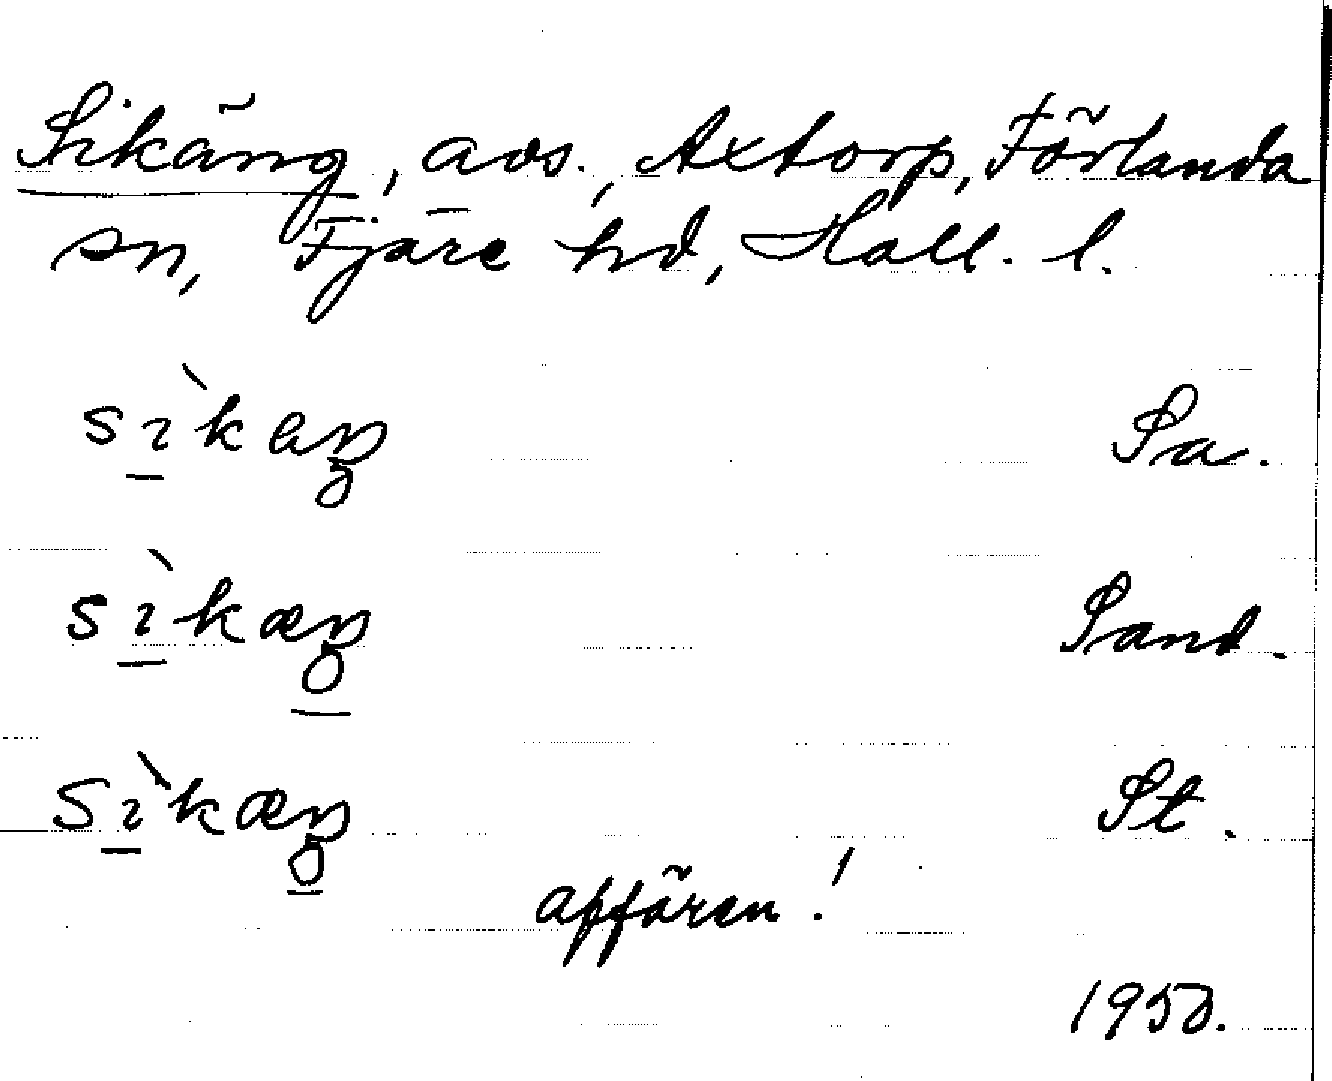 Sikäng, avs., Axtorp, Förlanda
sn, Fjäre hd, Hall. l.
sı̀kaŋ Sa.
sı̀kæŋ Sand.
sı̀kæŋ St.
affären!
1950.